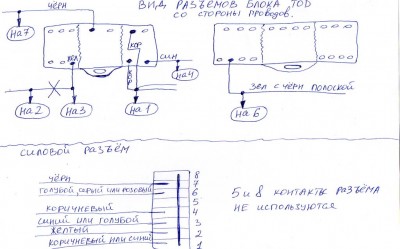 ВИД РАЗЪЕМОВ БЛОКА TOD
СО СТОРОНЫ ПРОВОДОВ.
ЧЁРН
На 7
КОР
СИН
На 4
На 2
На 3
На 1
ЗЕЛ С ЧЁРН ПОЛОСКОЙ
На 6
СИЛОВОЙ РАЗЪЁМ
ЧЁРН 8
ГОЛУБОЙ, СЕРЫЙ ИЛИ РОЗОВЫЙ 7
6
КОРИЧНЕВЫЙ 5
СИНИЙ ИЛИ ГОЛУБОЙ 4
ЖЁЛТЫЙ 3
КОРИЧНЕВЫЙ ИЛИ СИНИЙ 2
1
5 и 8 КОНТАКТЫ РАЗЪЁМА
НЕ ИСПОЛЬЗУЮТСЯ